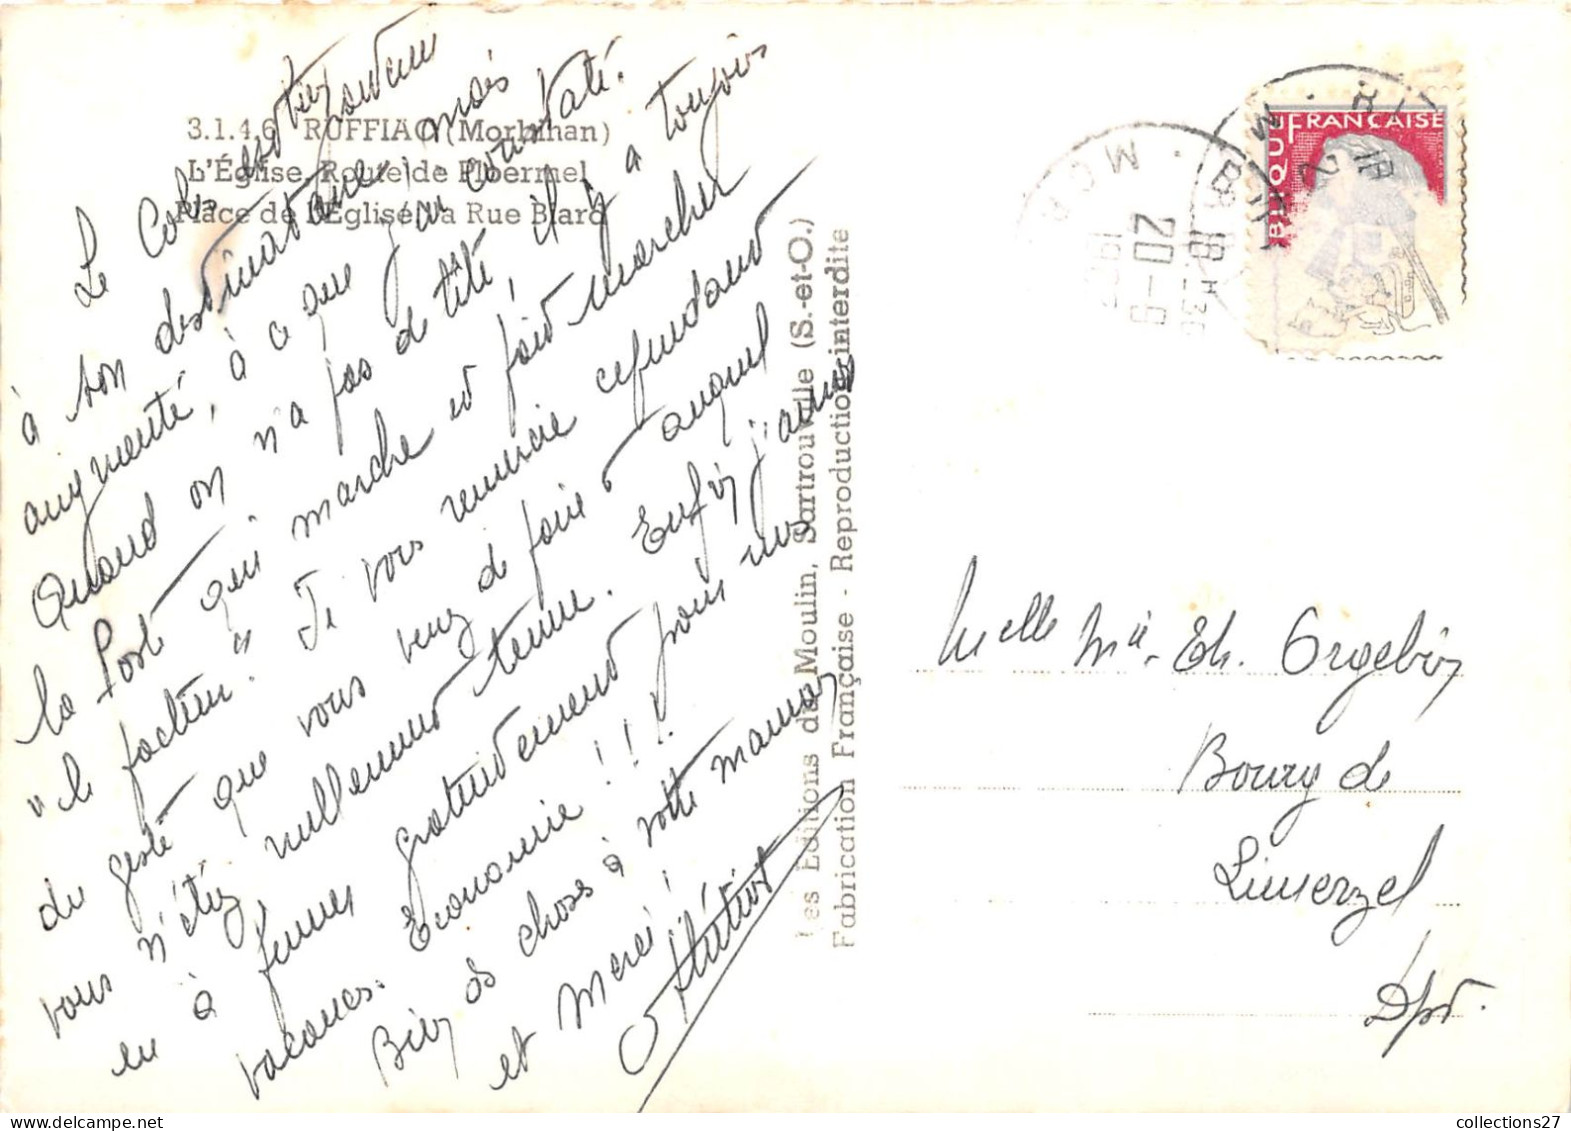 3.1.4.6 RUFFIAC (Morbihan)
L'Église, Route de Ploermel
Place de l'Église, la Rue Biard
Le Colis est bien
à son destinataire, rondement
augmenté, à ce que j'ai mais constaté.
Quand on n'a pas de tête, il y a toujours
la Poste qui marche et fait marcher
"le facteur." Je vous remercie cependant
du geste que vous venez de faire auquel
vous n'étiez nullement tenue. Enfin j'aurais
eu à gratuitement pour mes
vacances. Economie!!!
Bien des choses à votre maman
et Merci!
Les Éditions du Moulin, Sartrouville (S.-et-O.)
Fabrication Française - Reproduction interdite
BLIQUE FRANÇAISE
MOR
20-9
18 H 30
Melle Mie-Eh. Orgebin
Bourg de
Limerzel
Dpt.
collections27